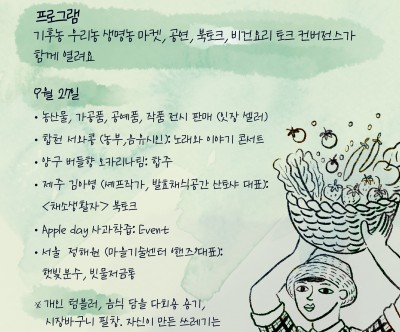 프로그램
기후농 우리농 생명농 마켓, 공연, 북토크, 비건요리 토크 컨버전스가
함께 열려요
9월 27일
• 농산물, 가공품, 공예품, 작품 전시 판매 (잇장 셀러)
• 합천 서와콩 (농부,음유시인): 노래와 이야기 콘서트
• 양구 버들향 오카리나팀: 합주
• 제주 김아영 (셰프작가, 발효채식공간 산토샤 대표):
<채소생활자> 북토크
• Apple day 사과작춤: Event
• 서울 정해원 (마을기술센터 핸즈대표):
햇빛본수, 빗물저금통
※ 개인 텀블러, 음식 담을 다회용 용기,
시장바구니 필참. 자신이 만든 쓰레기는